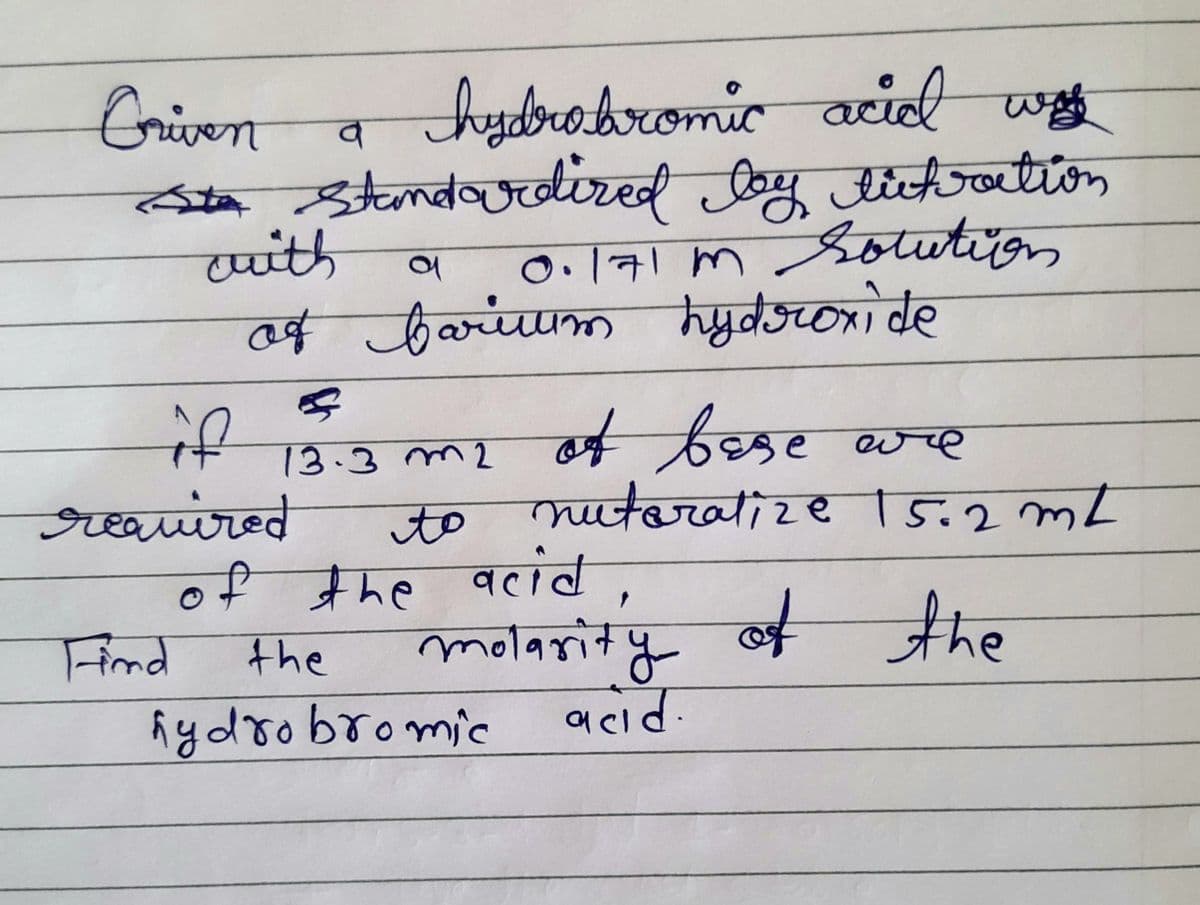 Given a hydrobromic acid was
standardized by titration
with a 0.171 M Solution
of barium hydroxide
if 13.3 mL of base are
required to nuteralize 15.2 mL
of the acid,
Find the molarity of the
hydrobromic acid.